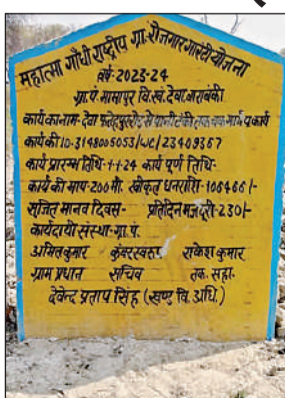 महात्मा गाँधी राष्ट्रीय ग्रा. रोजगार गारंटी योजना
वर्ष- 2023-24
ग्रा.पं. मामापुर वि.खं. देवा बाराबंकी
कार्य का नाम- देवा फतेहपुर रोड से पानी टंकी तक चकमार्ग प कार्य
कार्य की ID-3148005053/WC/23409367
कार्य प्रारम्भ तिथि-1-1-24 कार्य पूर्ण तिथि-
कार्य की माप-200मी. स्वीकृत धनराशि-106466/-
सृजित मानव दिवस- प्रतिदिन मजदूरी-230/-
कार्यदायी संस्था-ग्रा.पं.
अमित कुमार राकेश कुमार
ग्राम प्रधान सचिव तक. सहा.
देवेन्द्र प्रताप सिंह (खण्ड वि. अधि.)